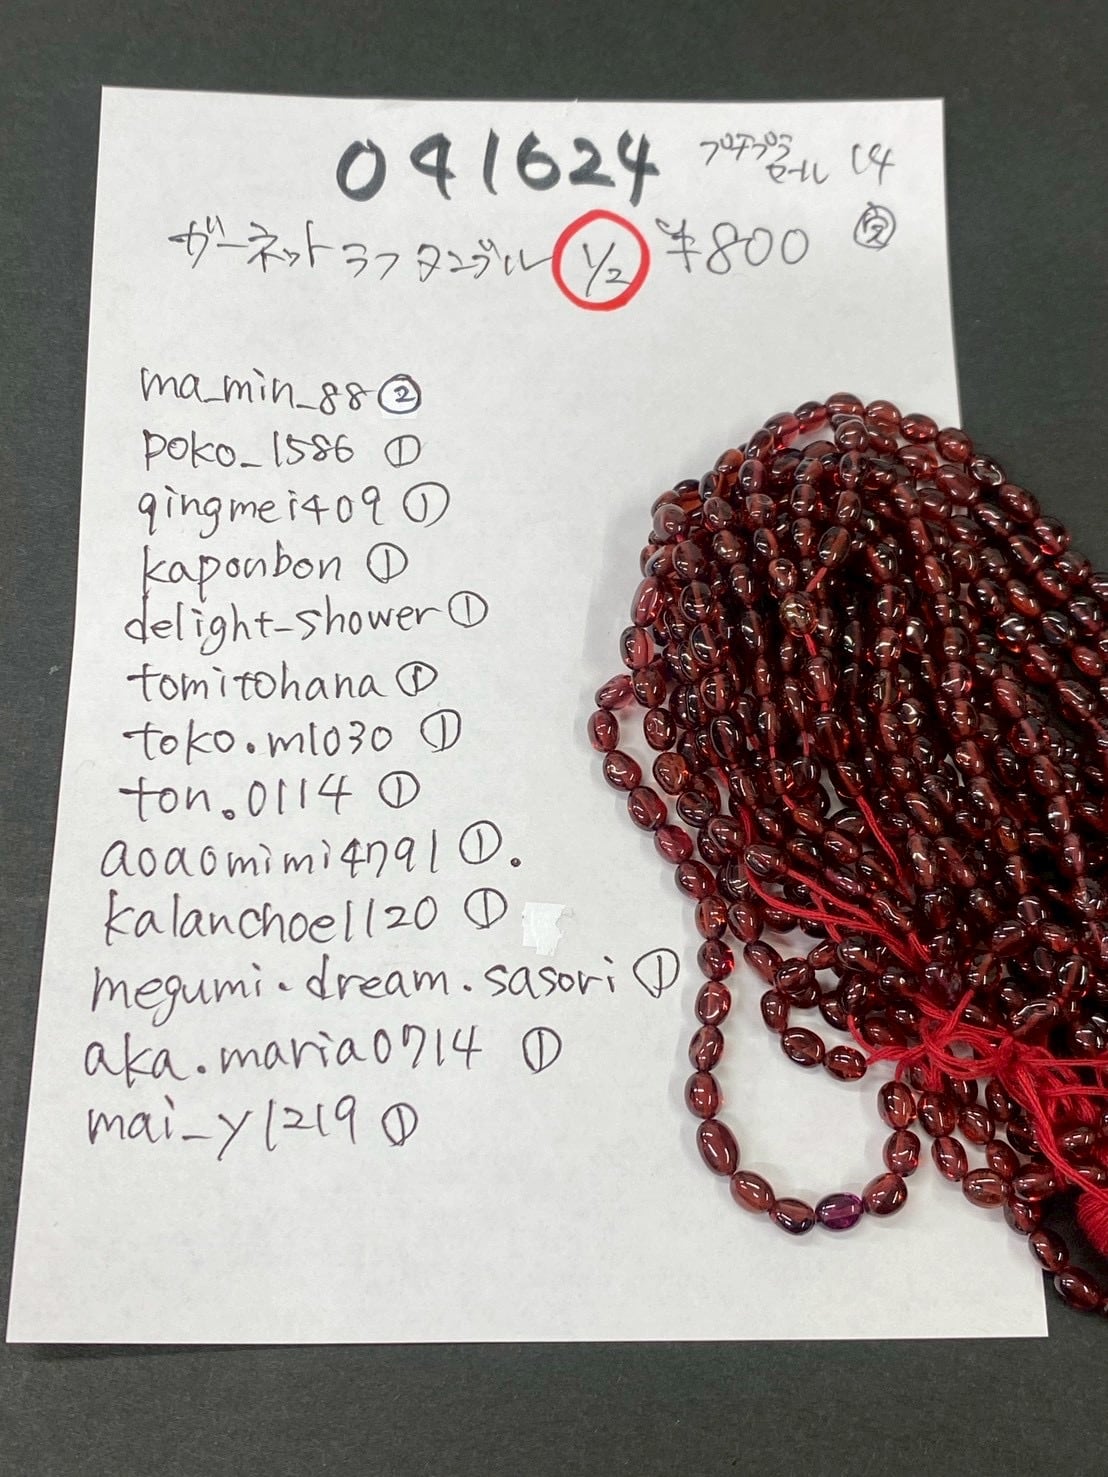 041624 プチプラセール 14
ガーネットラフタンブル 1/2 ¥800
ma_min_88 ②
poko_1586 ①
qingmei409 ①
kaponbon ①
delight-shower ①
tomitohana ①
toko.m1030 ①
ton.0114 ①
aoaomimi4791 ①.
kalanchoe1120 ①
megumi.dream.sasori ①
aka.maria0714 ①
mai_y1219 ①